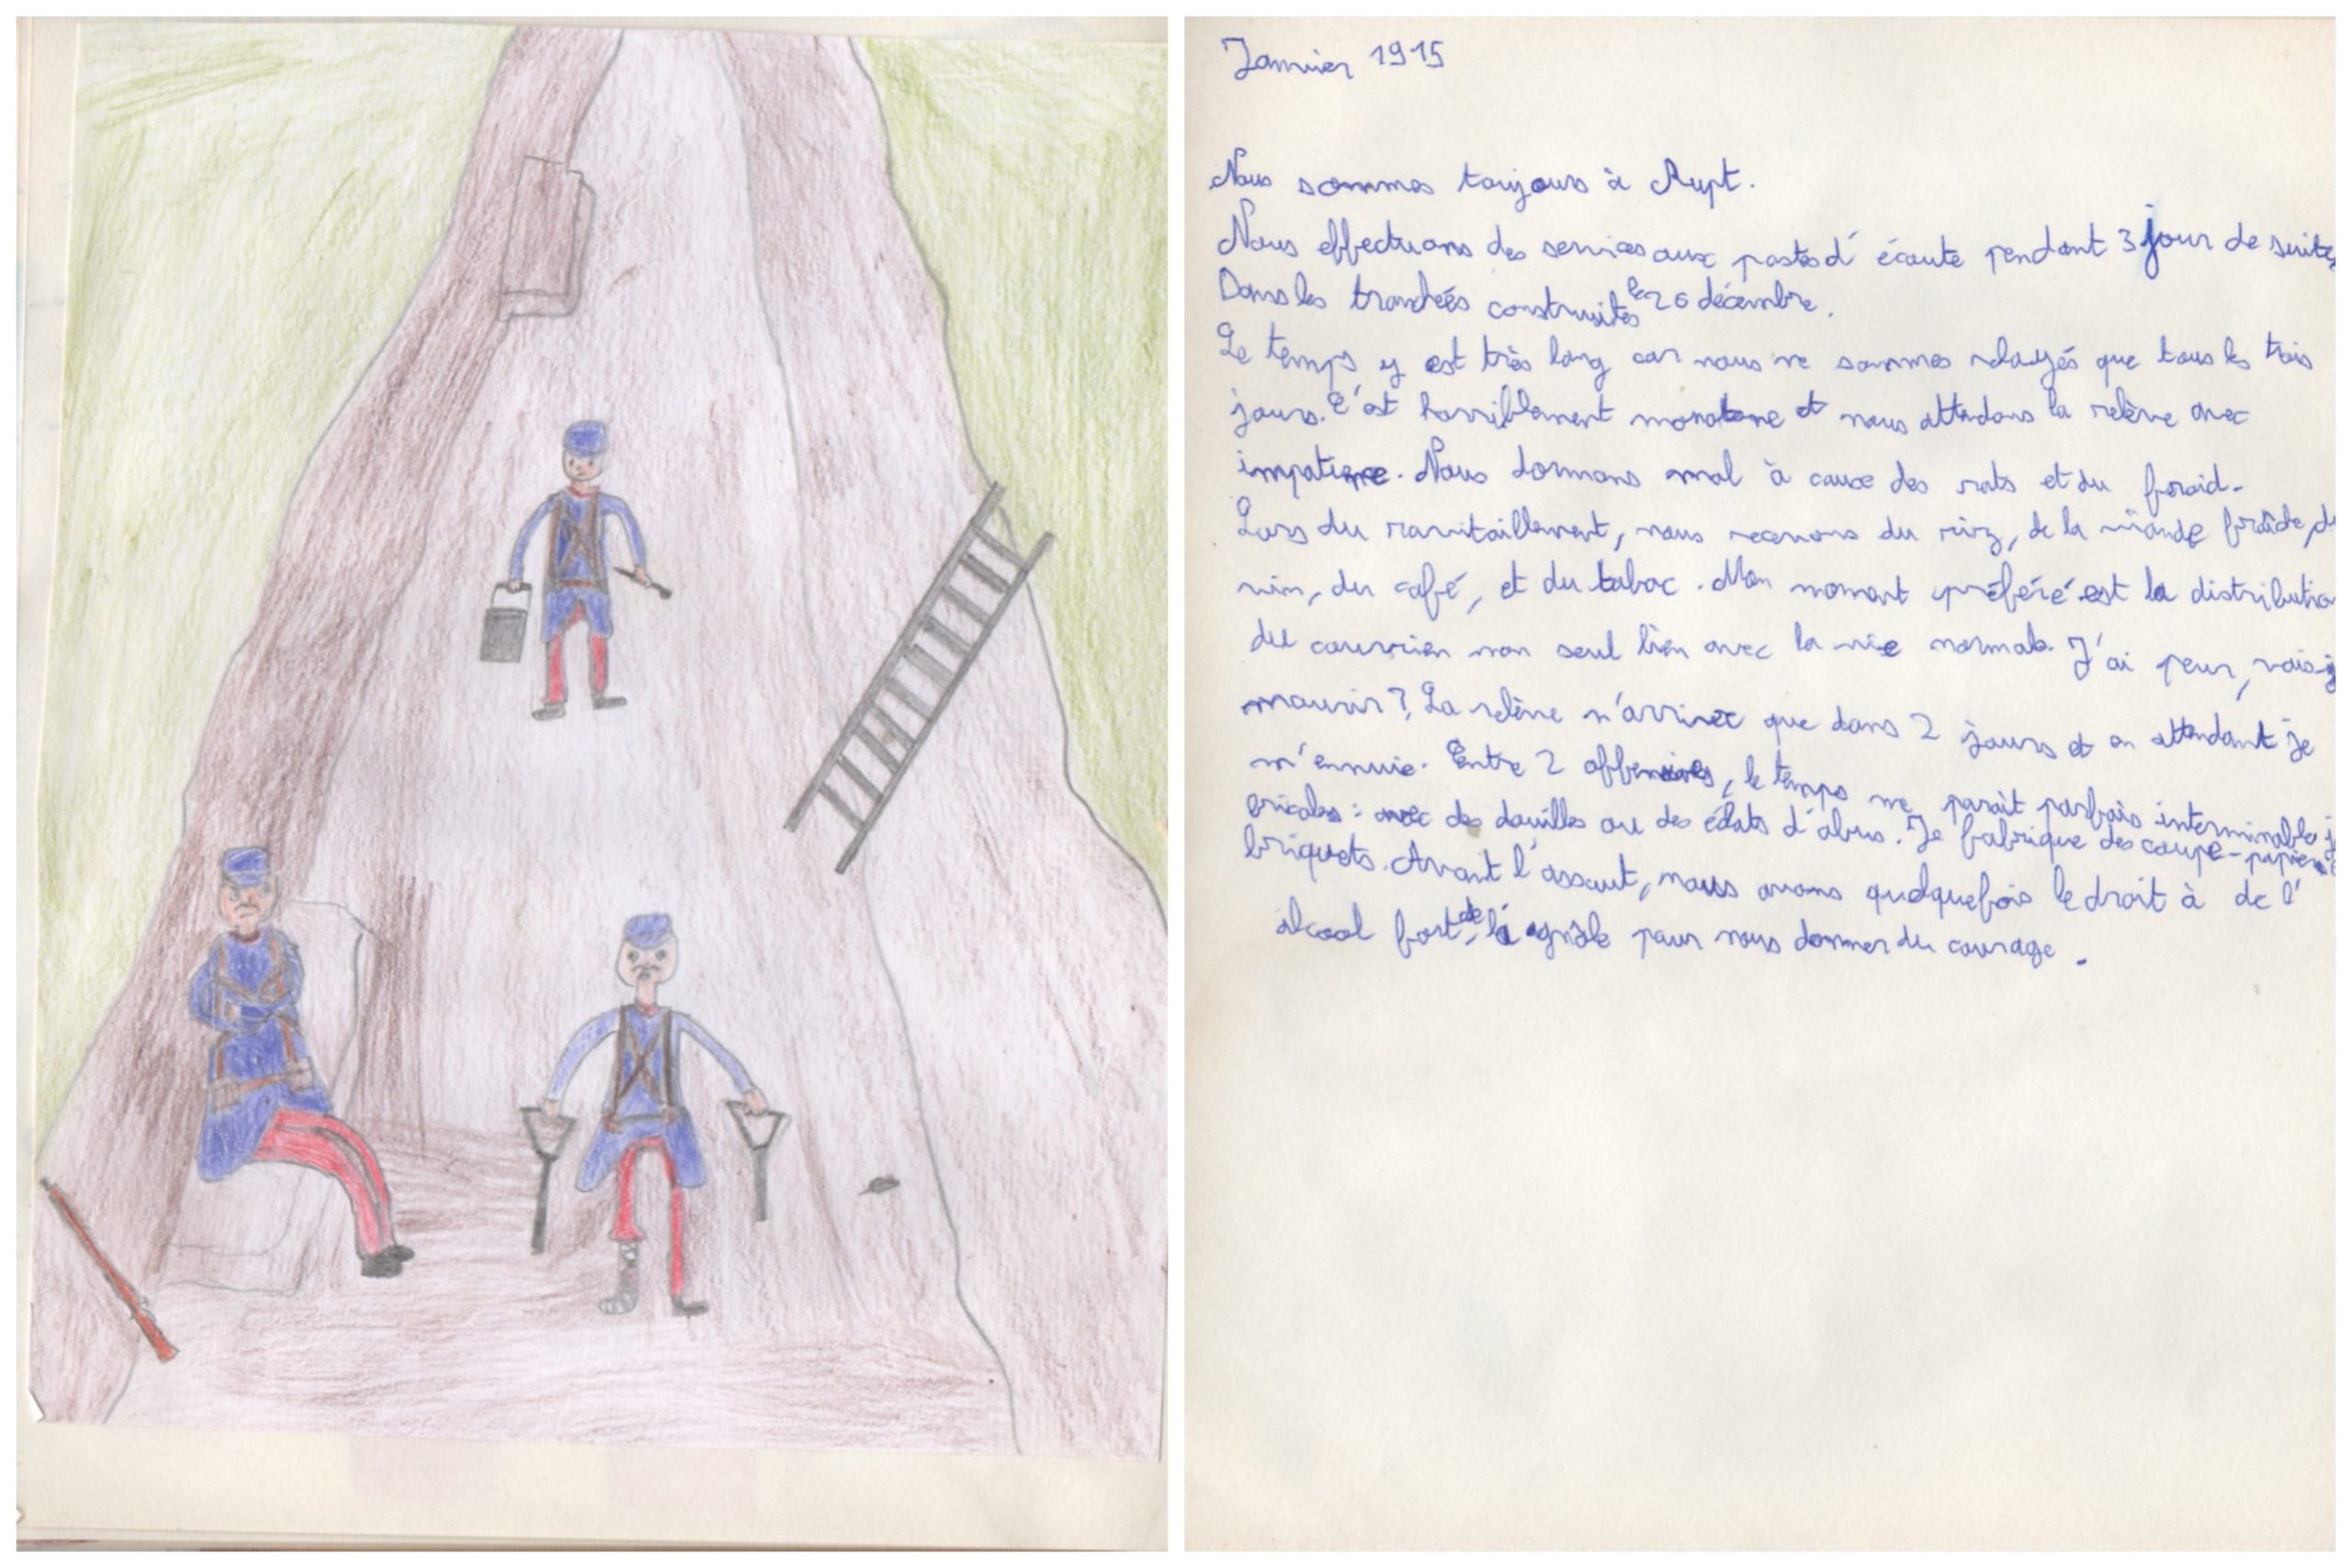 Janvier 1915
Nous sommes toujours à Rupt.
Nous effectuons des services aux postes d'écoute pendant 3 jour de suite,
Dans les tranchées construites le 26 décembre.
Le temps y est très long car nous ne sommes relayés que tous les trois
jours. C'est horriblement monotone et nous attendons la relève avec
impatience. Nous dormons mal à cause des rats et du froid.
Lors du ravitaillement, nous recevons du riz, de la viande froide, du
vin, du café, et du tabac. Mon moment préféré est la distribution
du courrier mon seul lien avec la vie normale. J'ai peur, vais-j
mourir? La relève n'arrive que dans 2 jours et en attendant je
m'ennuie. Entre 2 offensives, le temps me parait parfois interminable j
bricoles : avec des douilles ou des éclats d'obus. Je fabrique des coupe-papier
briquets. Avant l'assaut, nous avons quelquefois le droit à de l'
alcool fort, de la gnôle pour nous donner du courage.